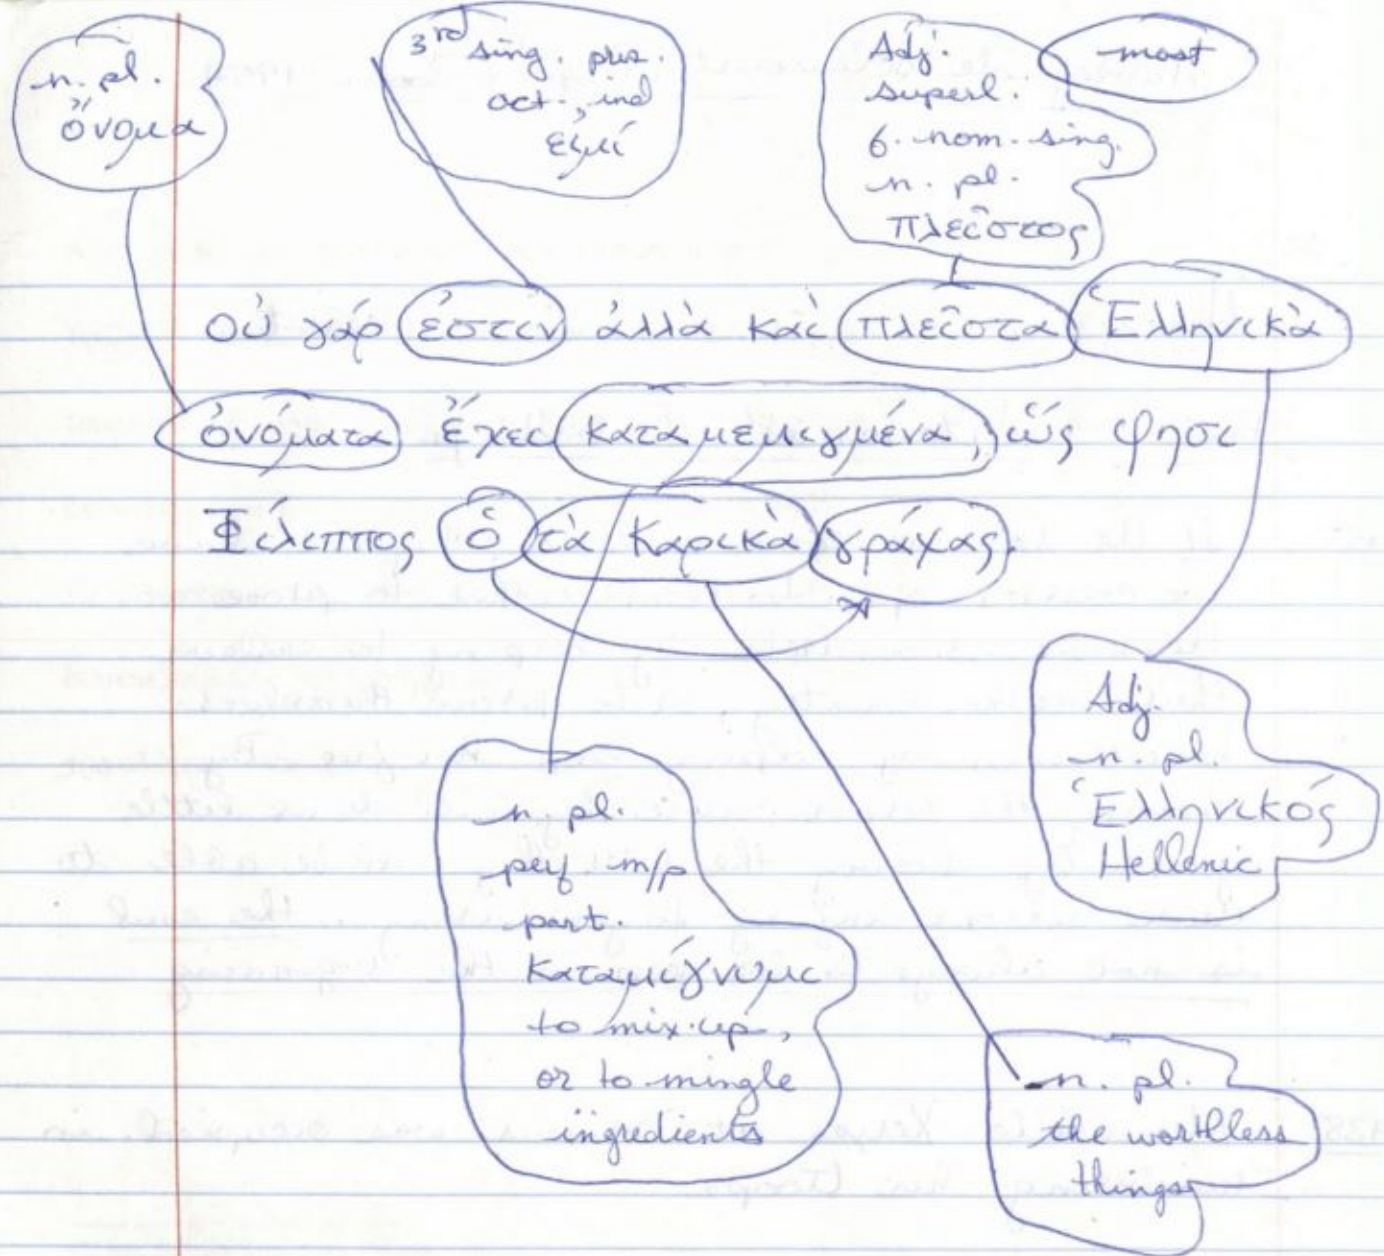 n. pl.
ὄνομα
3rd sing. pres.
act., ind
εἰμί
Adj.
superl.
f. nom. sing.
n. pl.
πλεῖστος
most
Οὐ γάρ ἐστιν ἀλλὰ καὶ πλεῖστα Ἑλληνικὰ
ὀνόματα ἔχει καταμεμιγμένα, ὥς φησι
Φίλιππος ὁ τὰ Καρικὰ γράχας.
Adj.
n. pl.
Ἑλληνικός
Hellenic
n. pl.
perf m/p
part.
καταμίγνυμι
to mix up,
or to mingle
ingredients
n. pl.
the worthless
things